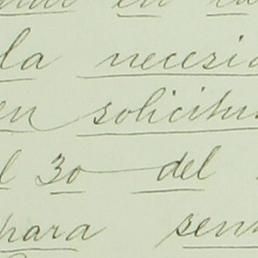 en
la necesi
en solicitu
l 30 del
para sen